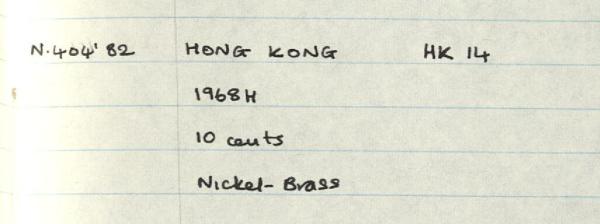 N.404'82 HONG KONG HK 14
1968H
10 cents
Nickel-Brass